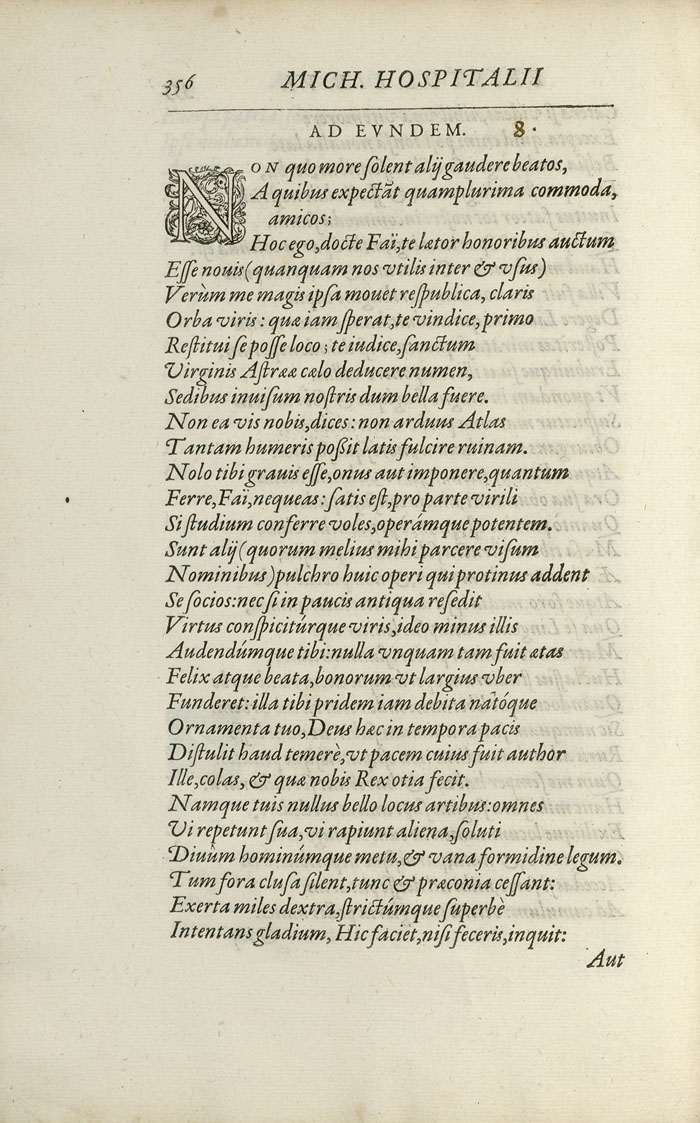 356 MICH. HOSPITALII
AD EVNDEM. 8.
NON quo more ſolent alij gaudere beatos,
A quibus expectãt quamplurima commoda,
amicos;
Hoc ego, docte Faï, te lætor honoribus auctum
Eſſe nouis (quanquam nos vtilis inter & vſus)
Verùm me magis ipſa mouet reſpublica, claris
Orba viris: quæ iam ſperat, te vindice, primo
Reſtitui ſe poſſe loco; te iudice, ſanctum
Virginis Aſtrææ cælo deducere numen,
Sedibus inuiſum noſtris dum bella fuere.
Non ea vis nobis, dices: non arduus Atlas
Tantam humeris poßit latis fulcire ruinam.
Nolo tibi grauis eſſe, onus aut imponere, quantum
Ferre, Faï, nequeas: ſatis eſt, pro parte virili
Si ſtudium conferre voles, operámque potentem.
Sunt alij (quorum melius mihi parcere viſum
Nominibus) pulchro huic operi qui protinus addent
Se ſocios: nec ſi in paucis antiqua reſedit
Virtus conſpicitúrque viris, ideo minus illis
Audendúmque tibi: nulla vnquam tam fuit ætas
Felix atque beata, bonorum vt largius vber
Funderet: illa tibi pridem iam debita natóque
Ornamenta tuo, Deus hæc in tempora pacis
Diſtulit haud temerè, vt pacem cuius fuit author
Ille, colas, & quæ nobis Rex otia fecit.
Namque tuis nullus bello locus artibus: omnes
Vi repetunt ſua, vi rapiunt aliena, ſoluti
Diuûm hominúmque metu, & vana formidine legum.
Tum fora cluſa ſilent, tunc & præconia ceſſant:
Exerta miles dextra, ſtrictúmque ſuperbè
Intentans gladium, Hic faciet, niſi feceris, inquit:
Aut